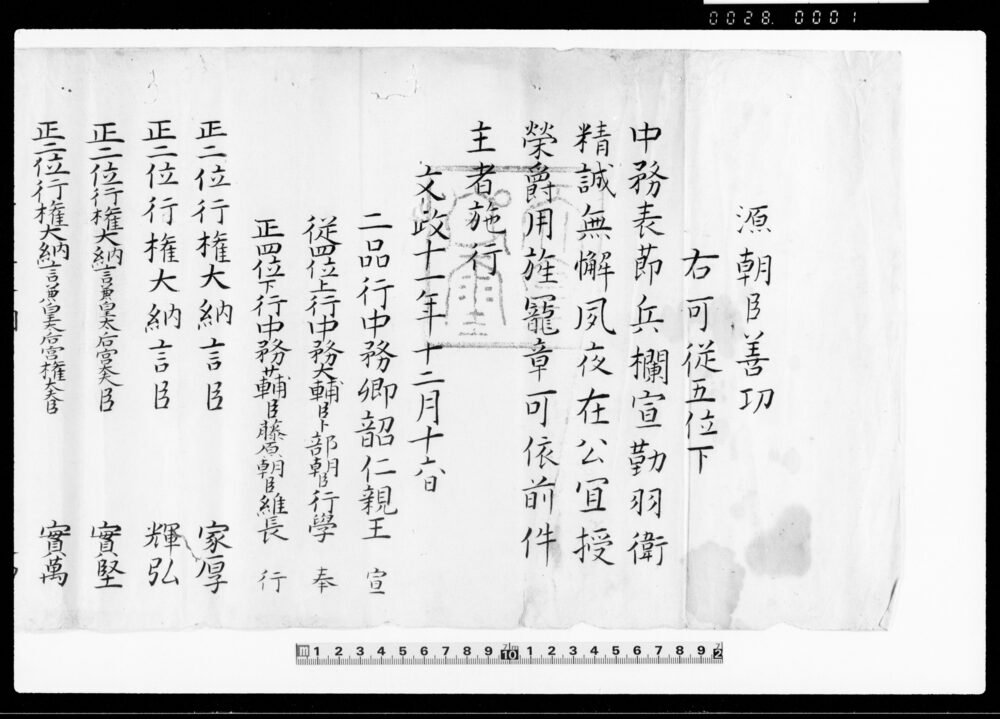 0028. 0001
源朝臣善功
右可従五位下
中務表莭兵欄宣勤羽衛
精誠無懈夙夜在公冝授
榮爵用旌寵章可依前件
主者施行
文政十一年十二月十六日
二品行中務卿韶仁親王 宣
従四位上行中務大輔臣卜部朝臣行學 奉
正四位下行中務少輔臣藤原朝臣維長 行
正二位行権大納言臣 家厚
正二位行権大納言臣 輝弘
正二位行権大納言兼皇太后宮大夫臣 實堅
正二位行権大納言兼皇太后宮権大夫臣 實萬
m 1 2 3 4 5 6 7 8 9 10 1 2 3 4 5 6 7 8 9 2